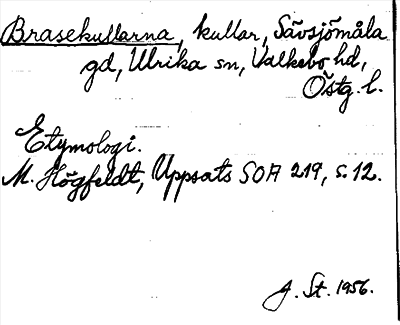 Brasekullarna, kullar, Sävsjömåla
gd, Ulrika sn, Valkebo hd,
Östg. l.
Etymologi.
M. Högfeldt, Uppsats SOA 219, s. 12.
J. St. 1956.